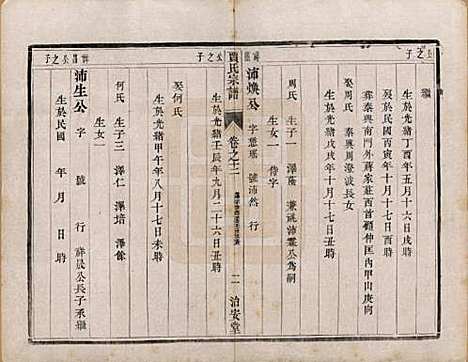 繼
生於光緒丁酉年五月十六日戌時
歿於民國十六年八月十七日寅時
葬泰興南門外蔣家莊西首頭伸匡內甲山庚向
娶周氏 泰興周澄波長女
生於光緒戊戌年十月十七日丑時
周氏 生子一 澤隆 兼祧沛霖公爲嗣
生女一 待字
沛煥公 字慧瑤 號沛然 行
公之子
賈氏宗譜
卷之十二
二 治安堂
公之子
生於光緒壬辰年九月二十六日丑時
娶何氏
生於光緒甲午年八月十七日未時
何氏 生子三 澤仁 澤培 澤餘
生女一
沛生公 字 號 行 祥晨公長子承繼
生於民國 年 月 日 時
公之子